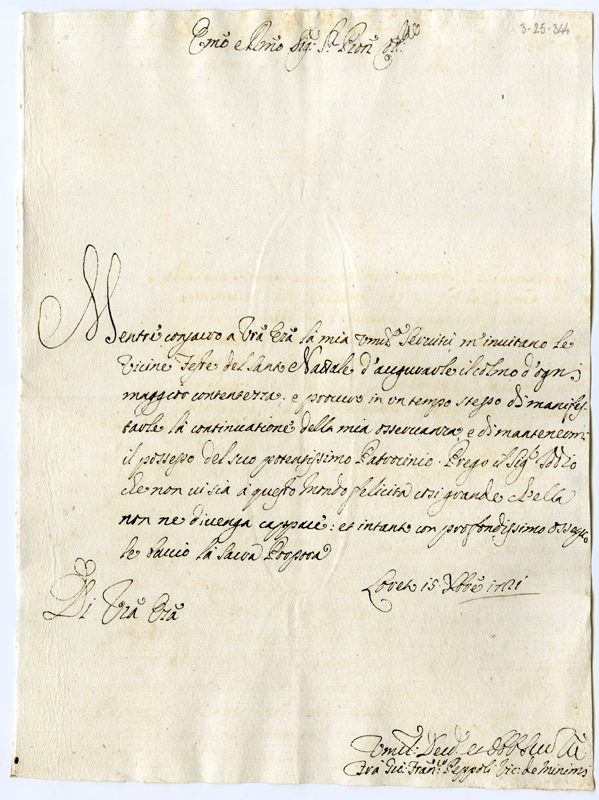 3-25-344
Emo e Rmo Sig: Sr Pron Colmo
Mentre consacro a Vra Eza la mia Umilma Servitù m'invitano le
vicine Feste del Santo Natale d'augurarle il colmo d'ogni
maggior contentezza: e procuro in un tempo stesso di manifes-
tarle la continuatione della mia osservanza, e di mantenermi
il possesso del suo potentissimo Patrocinio. Prego il Sigr Iddio
che non vi sia à questo mondo felicità così grande ch'ella
non ne divenga cappace: et intanto con profondissimo ossequio
le baccio la Sacra Porpora
Di Vra Eza
Loreto 15 Xbre
Umil: Devo: et Obb
Fra Gio: Franco Peppoli Vic: de Minimi